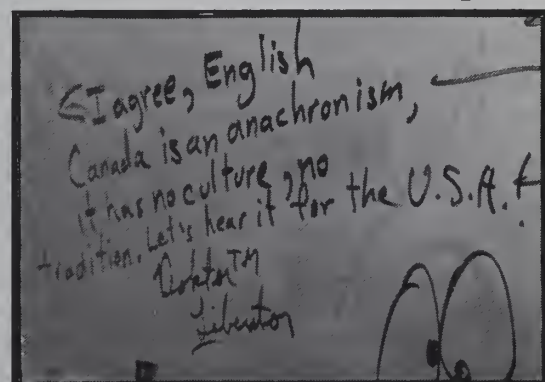 ← I agree, English
Canada is an anachronism,
it has no culture, no
tradition. Let's hear it for the U.S.A.!
Doktor™
Liberator